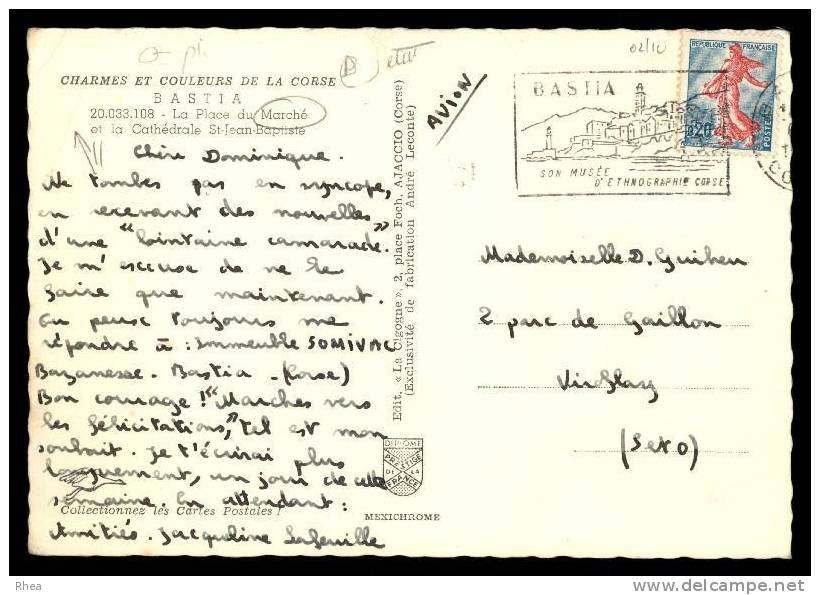 02/10
CHARMES ET COULEURS DE LA CORSE
BASTIA
20.033.108 - La Place du Marché
et la Cathédrale St-Jean-Baptiste
Chère Dominique.
Ne tombes pas en syncope,
en recevant des nouvelles
d'une "lointaine camarade."
Je m'excuse de ne le
faire que maintenant.
Tu peux toujours me
répondre à : Immeuble SOMIVAC
Bastia - (Corse)
Bon courage ! "Marches vers
les félicitations," tel est mon
souhait. Je t'écrirai plus
longuement, un jour de cette
semaine. En attendant :
Collectionnez les Cartes Postales !
Amitiés. Jacqueline
Edit. « La Cigogne », 2, place Foch, AJACCIO (Corse)
(Exclusivité de fabrication André Leconte)
DIPLOME
PRESTIGE
DE LA
FRANCE
MEXICHROME
AVION
BASTIA
SON MUSÉE
D'ETHNOGRAPHIE CORSE
REPUBLIQUE FRANÇAISE
0,20
POSTES
Mademoiselle D. Guiheu
2 parc de Gaillon
Viroflay
(S et O)
Rhea
delcampe.net